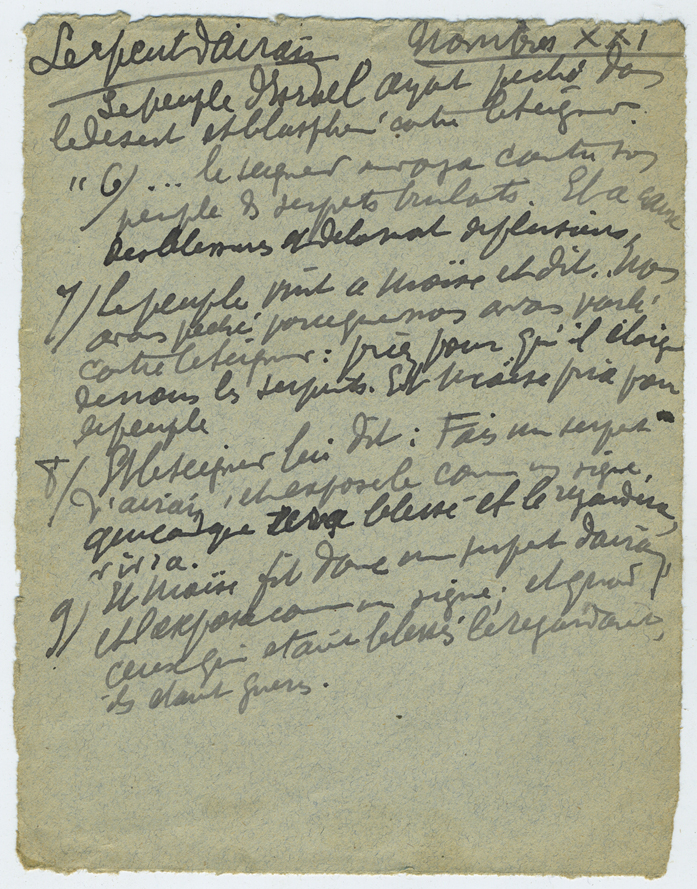 Serpent d'airain Nombres XXI
Le peuple d'Israel ayant peché dans
le desert et blasphémé contre le Seigneur.
" 6) ... le seigneur envoya contre son
peuple des serpents brulants. Et a cause
des blessures et de la mort de plusieurs,
7) le peuple vint a Moïse et dit. Nous
avons peché parce que nous avons parlé
contre le Seigneur : priez pour qu'il éloigne
de nous les serpents. Et Moïse pria pour
le peuple
8) Et le Seigneur lui dit : Fais un serpent
d'airain, et expose le comme un signe,
quiconque sera blessé et le regardera,
vivra.
9) Et Moïse fit donc un serpent d'airain,
et l'exposa comme un signe; et quand
ceux qui etaient blessés le regardaient,
ils etaient gueris.